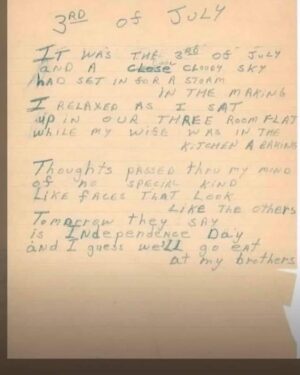 3RD of JULY
IT WAS THE 3RD OF JULY
AND A CLOSE CLOUDY SKY
HAD SET IN FOR A STORM
IN THE MAKING
I RELAXED AS I SAT
up IN OUR THREE ROOM FLAT
WHILE MY WIFE WAS IN THE
KITCHEN A BAKING
Thoughts PASSED thru MY MIND
of NO SPECIAL KIND
LIKE FACES THAT LOOK
LIKE THE OTHERS
Tomorrow they SAY
is INdepeNdeNce Day
and I guess we'll go eat
at my brothers